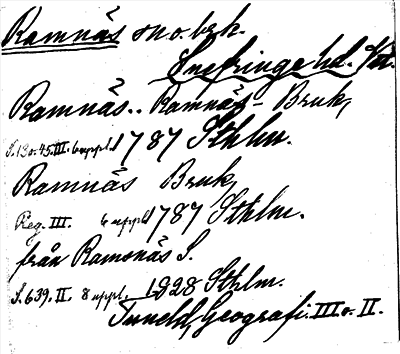 Ramnäs sn o. brk.
Snefringe hd. Vstm.
Ramnäs.. Ramnäs - Bruk,
S. 130. 45. III. 6 uppl. 1787 Sthlm.
Ramnäs Bruk,
Reg. III. 6 uppl. 1787 Sthlm.
från Ramonäs S.
S. 639. II. 8 uppl. 1828 Sthlm.
Tuneld, Geografi. III o. II.